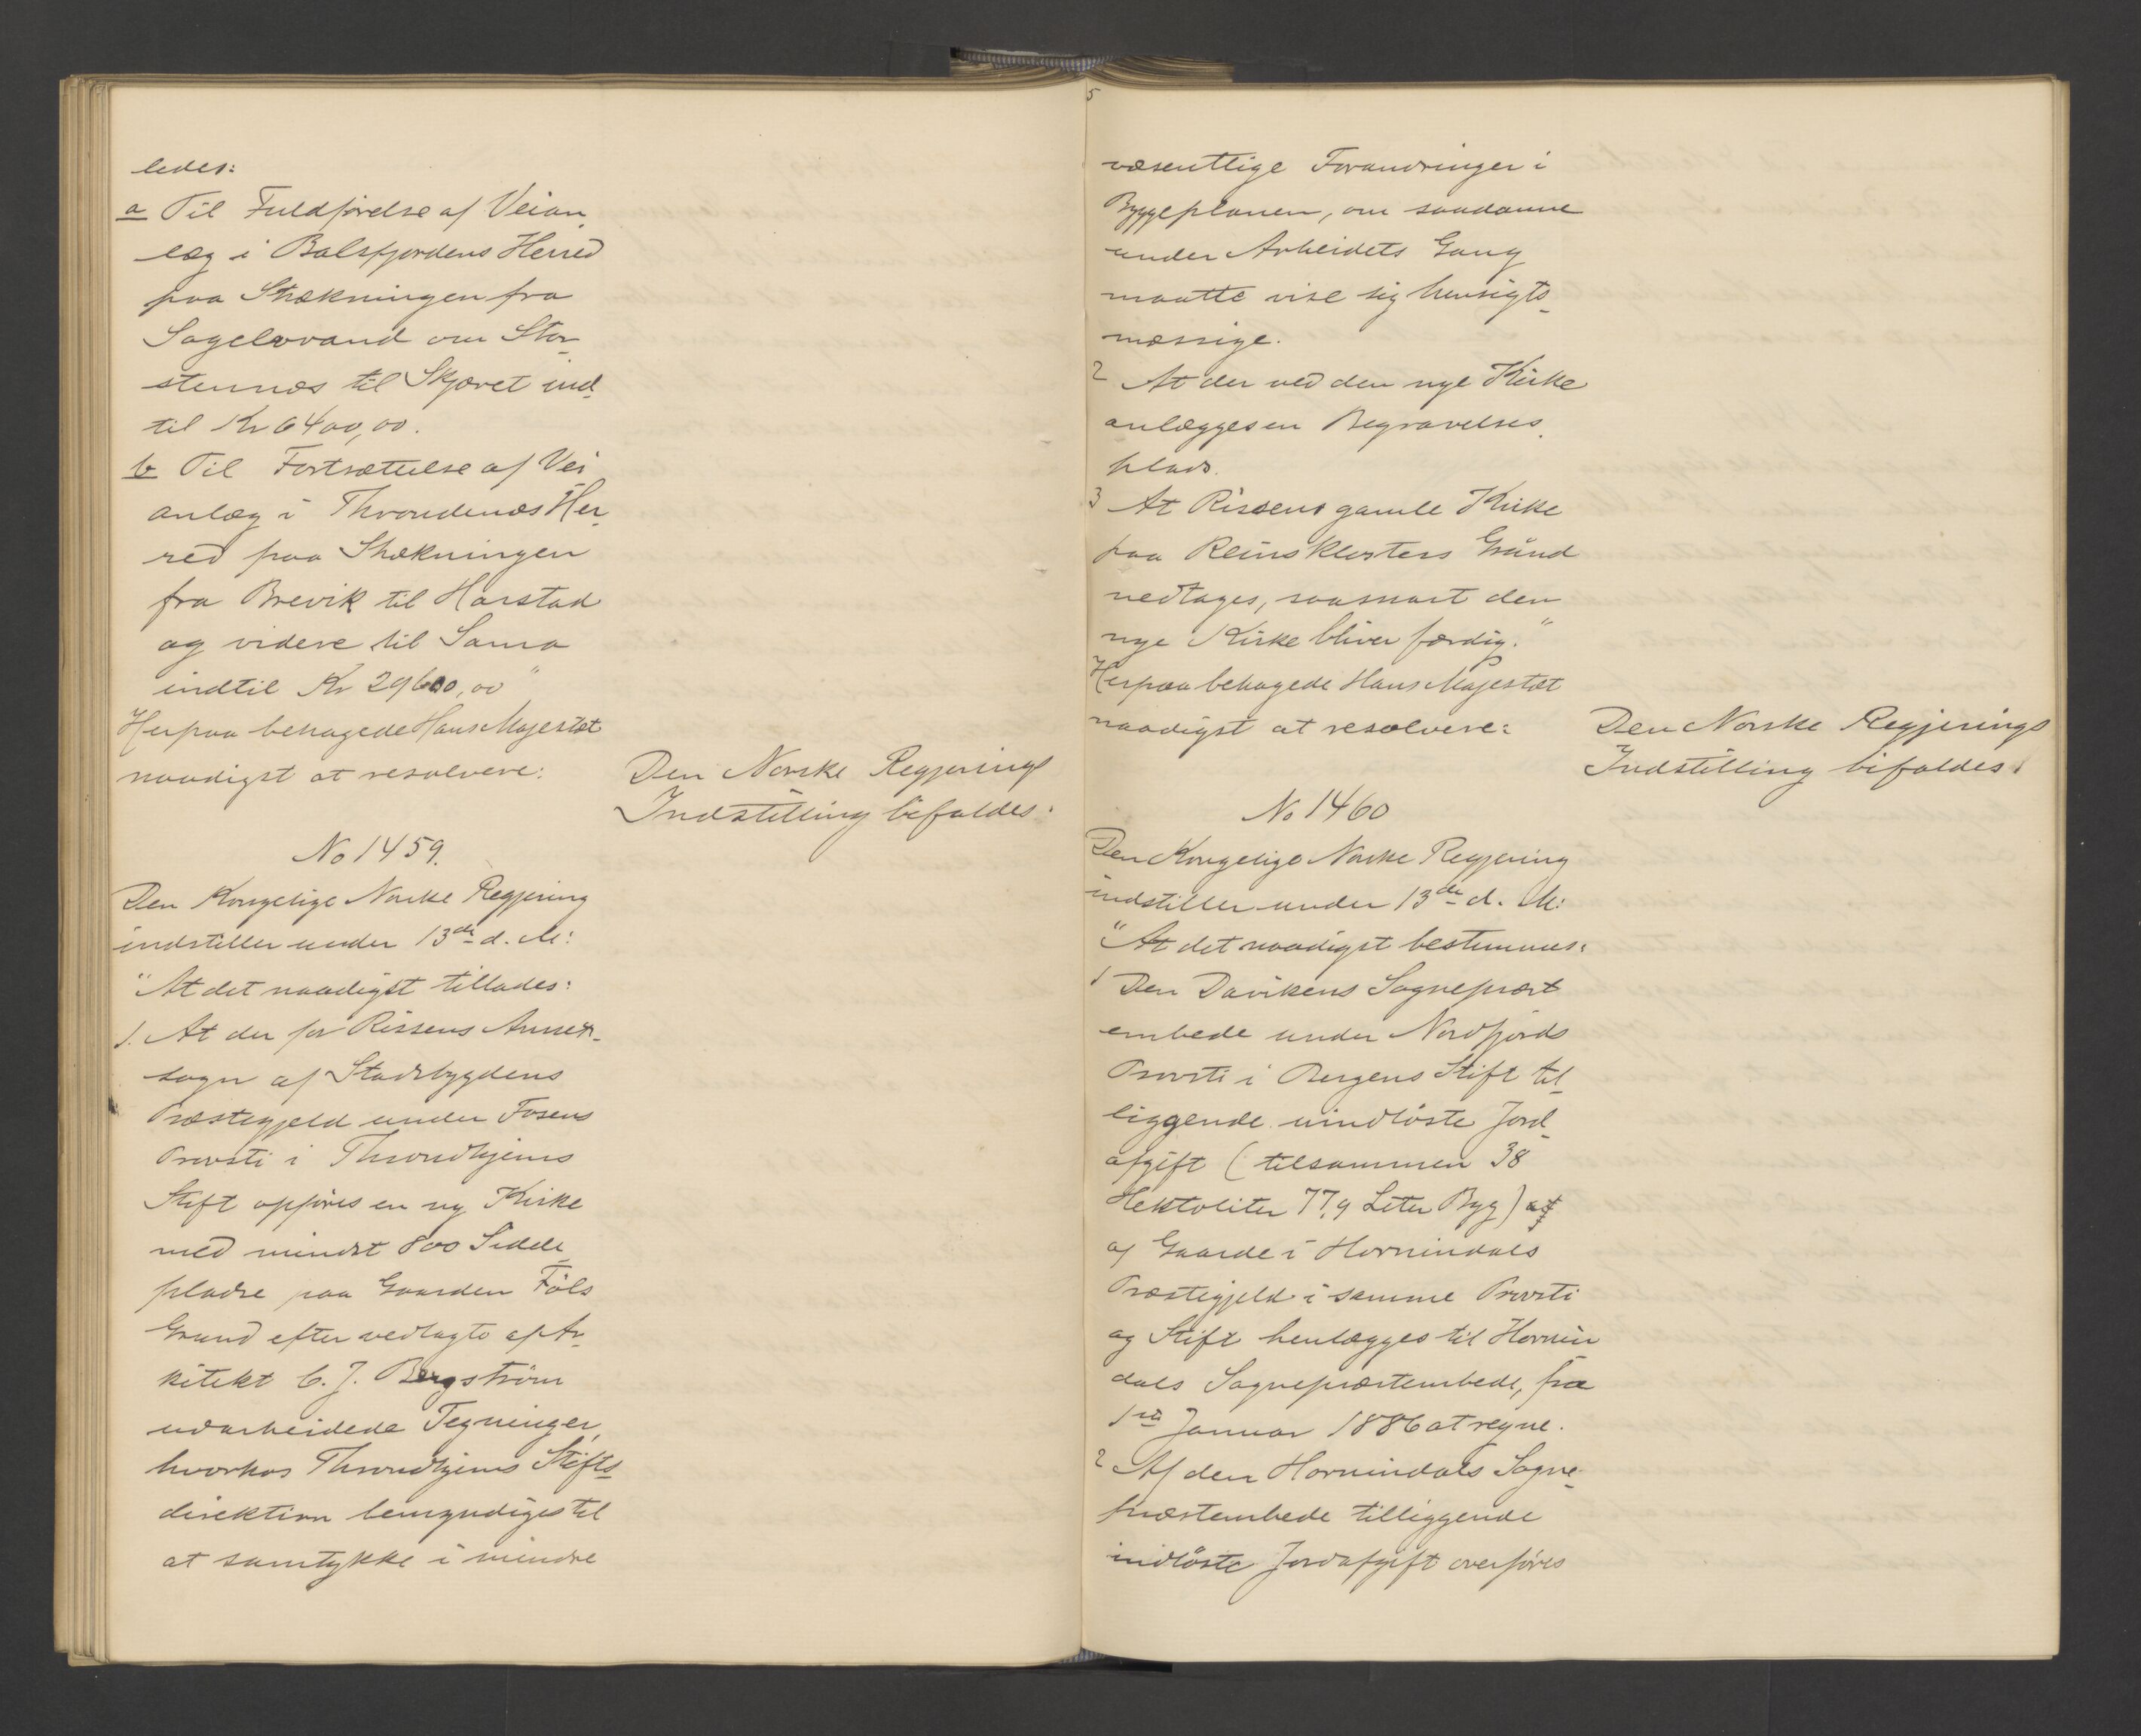 ledes:
a Til Fuldførelse af Veian
læg i Balsfjordens Herred
paa Strækningen fra
Sagelvvand om Stor-
stennæs til Skjæret ind-
til Kr 6400,00.
b Til Fortsættelse af Vei
anlæg i Throndenæs Her-
red paa Strækningen
fra Brevik til Harstad
og videre til Sama
indtil Kr 29600,00"
Herpaa behagede Hans Majestæt
naadigst at resolvere:
Den Norske Regjerings
Indstilling bifaldes.
No 1459.
Den Kongelige Norske Regjering
indstiller under 13de d. M:
"At det naadigst tillades:
1. At der for Rissens Annex-
sogn af Stadsbygdens
Præstegjeld under Fosens
Provsti i Throndhjems
Stift opføres en ny Kirke
med mindst 800 Sidde-
pladse paa Gaarden Föls
Grund efter vedlagte af Ar-
kitekt C. J. Bergström
udarbeidede Tegninger,
hvorhos Throndhjems Stifts-
direktion bemyndiges til
at samtykke i mindre
5
væsentlige Forandringer i
Byggeplanen, om saadanne
under Arbeidets Gang
maatte vise sig hensigts-
mæssige.
2 At der ved den nye Kirke
anlægges en Begravelses-
plads.
3 At Rissens gamle Kirke
paa Reinsklosters Grund
nedtages, saasnart den
nye Kirke bliver færdig."
Herpaa behagede Hans Majestæt
naadigst at resolvere:
Den Norske Regjerings
Indstilling bifaldes.
No 1460
Den Kongelige Norske Regjering
indstiller under 13de d. M:
"At det naadigst bestemmes:
1 Den Davikens Sogneprest
embede under Nordfjords
Provsti i Bergens Stift til-
liggende uindløste Jord-
afgift (tilsammen 38
Hektoliter 77,9 Liter Byg) af
af Gaarde i Hornindals
Præstegjeld i samme Provsti
og Stift henlægges til Hornin
dals Sognepræstembede, fra
1ste Januar 1886 at regne.
2 Af den Hornindals Sogne-
præstembede tilliggende
indløste Jordafgift overføres